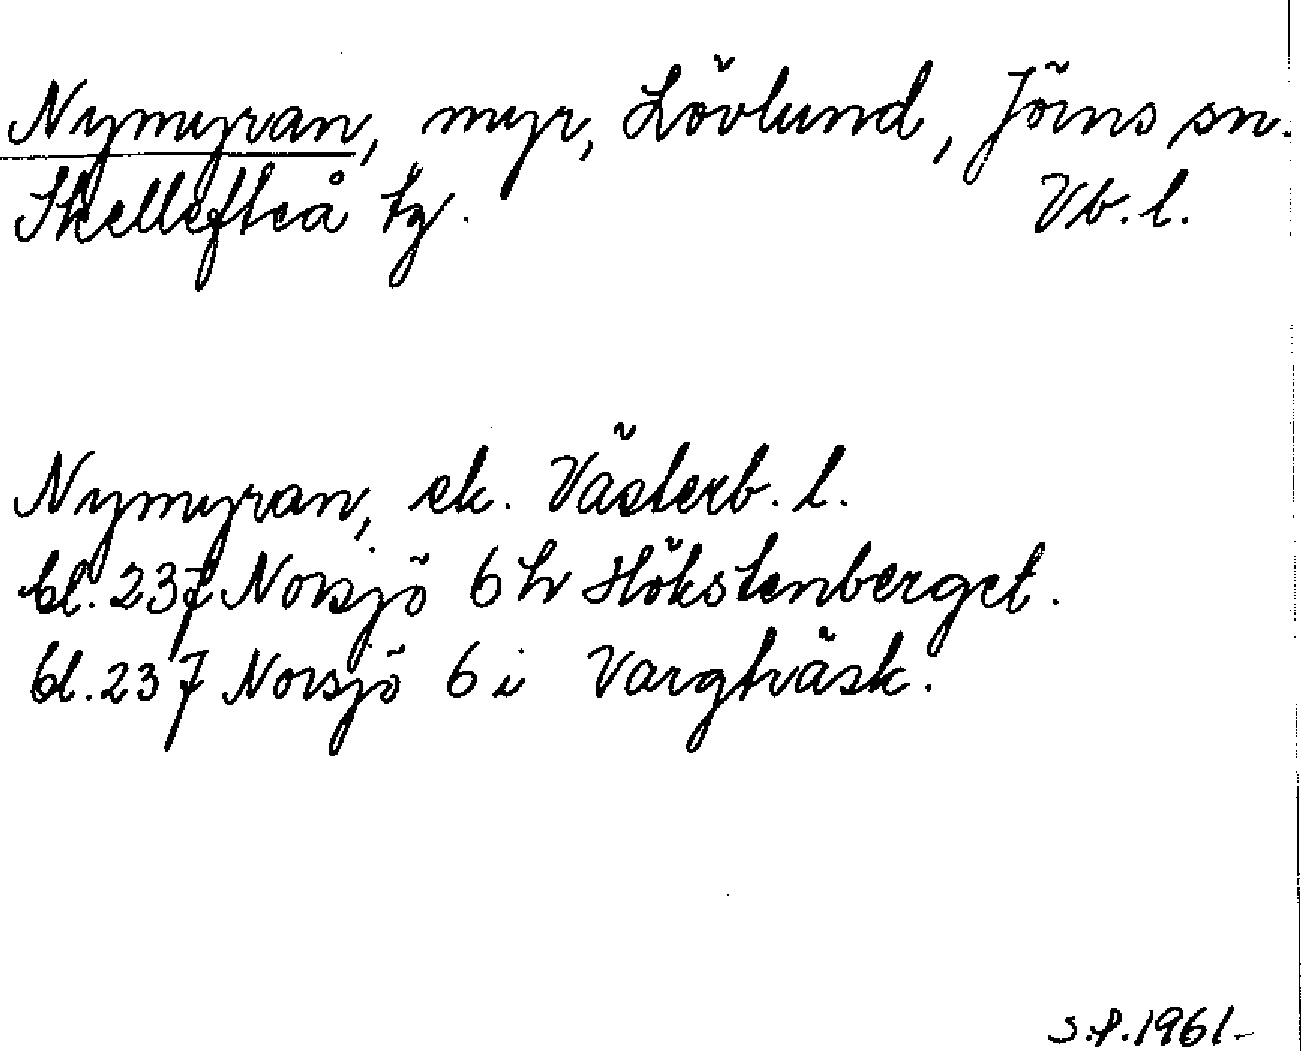 Nymyran, myr, Lövlund, Jörns sn.
Skellefteå tg. Vb. l.
Nymyran, ek. Västerb. l.
bl. 237 Norsjö 6 h Hökstenberget.
bl. 237 Norsjö 6 i Vargträsk.
S.P. 1961